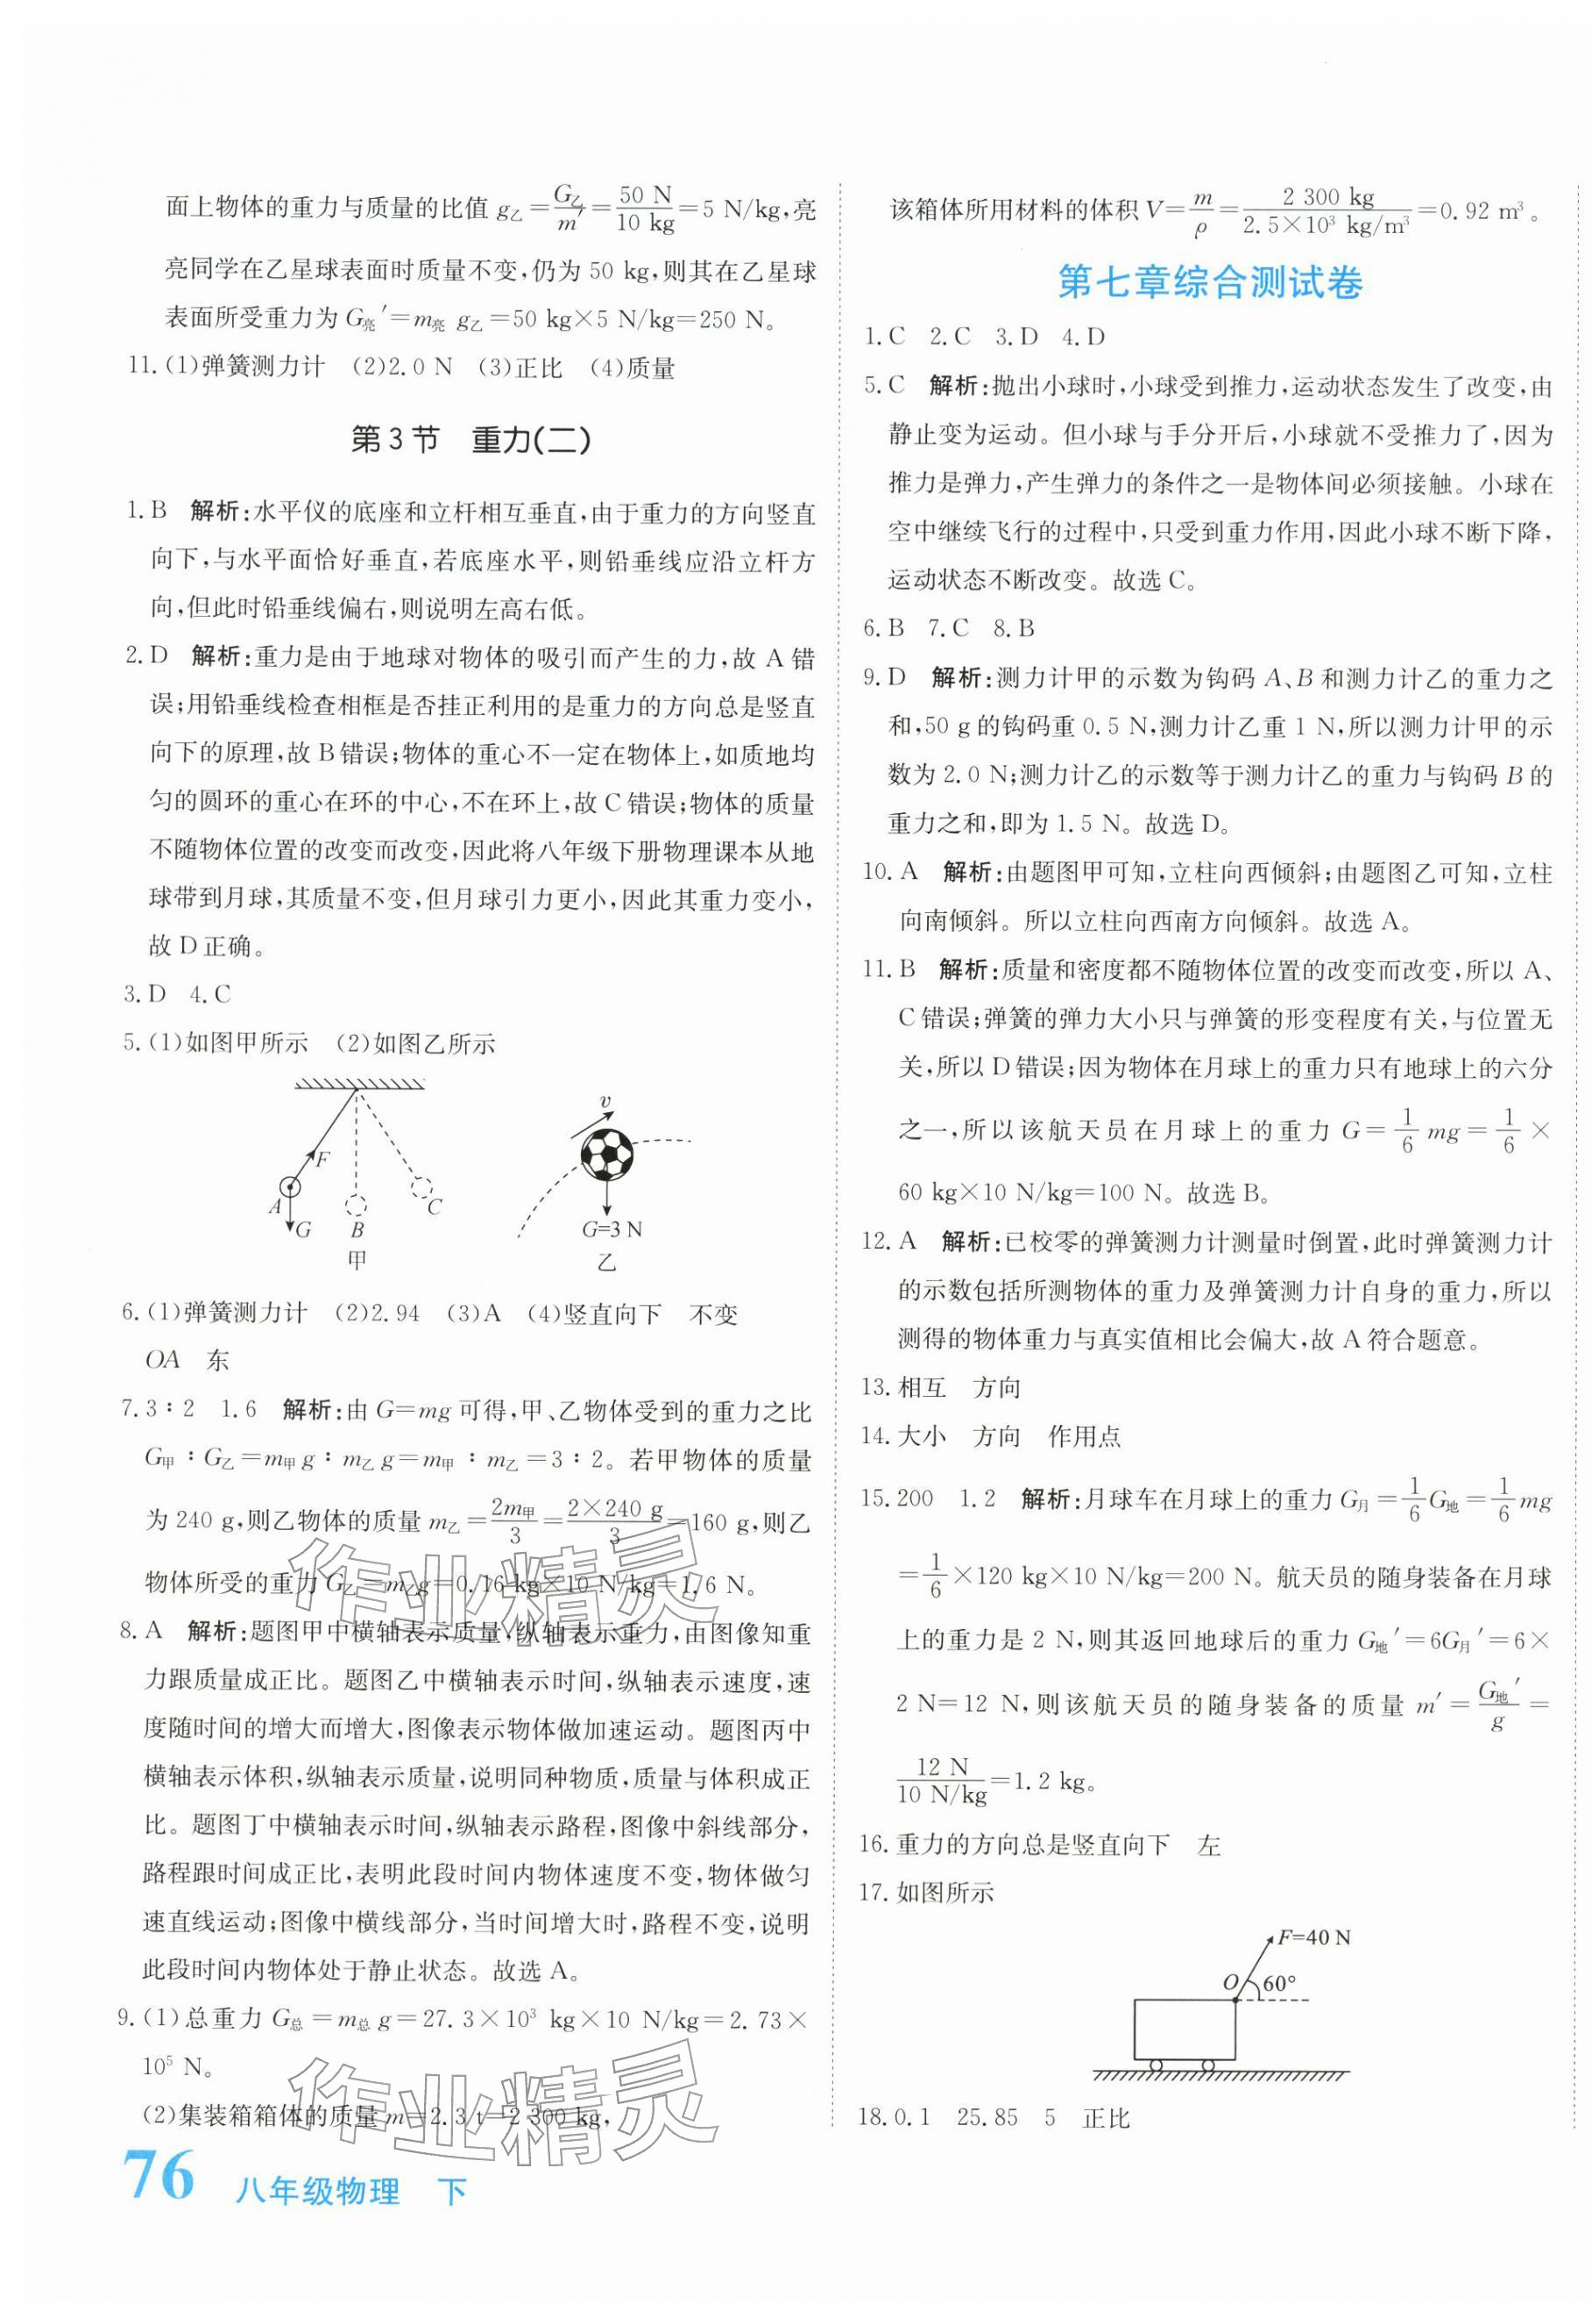 面上物体的重力与质量的比值 g乙=G乙/m′=50 N/10 kg=5 N/kg,亮
亮同学在乙星球表面时质量不变,仍为 50 kg,则其在乙星球
表面所受重力为 G亮′=m亮 g乙=50 kg×5 N/kg=250 N。
11.(1)弹簧测力计 (2)2.0 N (3)正比 (4)质量
第 3 节 重力(二)
1.B 解析:水平仪的底座和立杆相互垂直,由于重力的方向竖直
向下,与水平面恰好垂直,若底座水平,则铅垂线应沿立杆方
向,但此时铅垂线偏右,则说明左高右低。
2.D 解析:重力是由于地球对物体的吸引而产生的力,故 A 错
误;用铅垂线检查相框是否挂正利用的是重力的方向总是竖直
向下的原理,故 B 错误;物体的重心不一定在物体上,如质地均
匀的圆环的重心在环的中心,不在环上,故 C 错误;物体的质量
不随物体位置的改变而改变,因此将八年级下册物理课本从地
球带到月球,其质量不变,但月球引力更小,因此其重力变小,
故 D 正确。
3.D 4.C
5.(1)如图甲所示 (2)如图乙所示
F
A
G
B
C
甲
v
G=3 N
乙
6.(1)弹簧测力计 (2)2.94 (3)A (4)竖直向下 不变
OA 东
7.3∶2 1.6 解析:由 G=mg 可得,甲、乙物体受到的重力之比
G甲∶G乙=m甲 g∶m乙 g=m甲∶m乙=3∶2。若甲物体的质量
为 240 g,则乙物体的质量 m乙=2m甲/3=2×240 g/3=160 g,则乙
物体所受的重力 G乙=m乙g=0.16 kg×10 N/kg=1.6 N。
8.A 解析:题图甲中横轴表示质量,纵轴表示重力,由图像知重
力跟质量成正比。题图乙中横轴表示时间,纵轴表示速度,速
度随时间的增大而增大,图像表示物体做加速运动。题图丙中
横轴表示体积,纵轴表示质量,说明同种物质,质量与体积成正
比。题图丁中横轴表示时间,纵轴表示路程,图像中斜线部分,
路程跟时间成正比,表明此段时间内物体速度不变,物体做匀
速直线运动;图像中横线部分,当时间增大时,路程不变,说明
此段时间内物体处于静止状态。故选 A。
9.(1)总重力 G总=m总 g=27.3×10³ kg×10 N/kg=2.73×
10⁵ N。
(2)集装箱箱体的质量 m=2.3 t=2 300 kg,
作业精灵
作业精灵
76 八年级物理 下
该箱体所用材料的体积 V=m/ρ=2 300 kg/2.5×10³ kg/m³=0.92 m³。
第七章综合测试卷
1.C 2.C 3.D 4.D
5.C 解析:抛出小球时,小球受到推力,运动状态发生了改变,由
静止变为运动。但小球与手分开后,小球就不受推力了,因为
推力是弹力,产生弹力的条件之一是物体间必须接触。小球在
空中继续飞行的过程中,只受到重力作用,因此小球不断下降,
运动状态不断改变。故选 C。
6.B 7.C 8.B
9.D 解析:测力计甲的示数为钩码 A、B 和测力计乙的重力之
和,50 g 的钩码重 0.5 N,测力计乙重 1 N,所以测力计甲的示
数为 2.0 N;测力计乙的示数等于测力计乙的重力与钩码 B 的
重力之和,即为 1.5 N。故选 D。
10.A 解析:由题图甲可知,立柱向西倾斜;由题图乙可知,立柱
向南倾斜。所以立柱向西南方向倾斜。故选 A。
11.B 解析:质量和密度都不随物体位置的改变而改变,所以 A、
C 错误;弹簧的弹力大小只与弹簧的形变程度有关,与位置无
关,所以 D 错误;因为物体在月球上的重力只有地球上的六分
之一,所以该航天员在月球上的重力 G=1/6 mg=1/6×
60 kg×10 N/kg=100 N。故选 B。
12.A 解析:已校零的弹簧测力计测量时倒置,此时弹簧测力计
的示数包括所测物体的重力及弹簧测力计自身的重力,所以
测得的物体重力与真实值相比会偏大,故 A 符合题意。
13.相互 方向
14.大小 方向 作用点
15.200 1.2 解析:月球车在月球上的重力 G月=1/6 G地=1/6 mg
=1/6×120 kg×10 N/kg=200 N。航天员的随身装备在月球
上的重力是 2 N,则其返回地球后的重力 G地′=6G月′=6×
2 N=12 N,则该航天员的随身装备的质量 m′=G地′/g=
12 N/10 N/kg=1.2 kg。
16.重力的方向总是竖直向下 左
17.如图所示
F=40 N
O
60°
18.0.1 25.85 5 正比